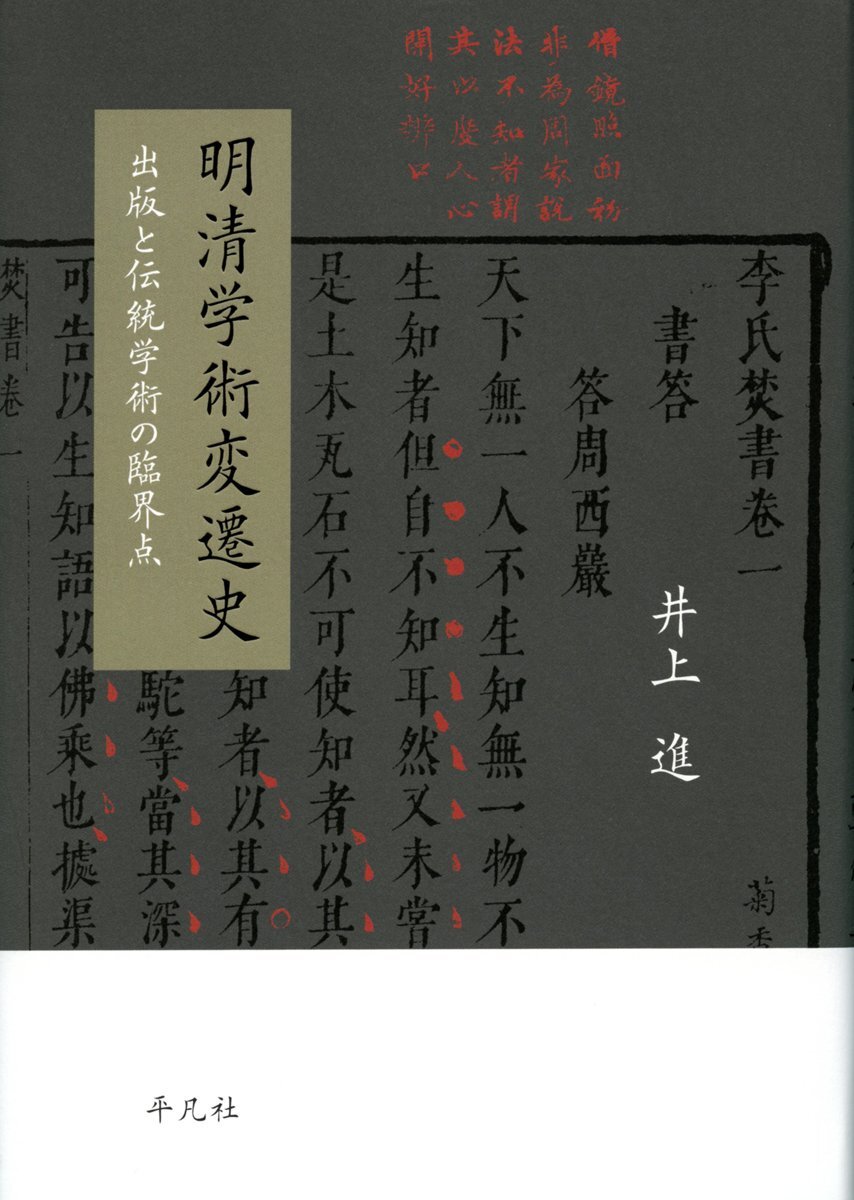 明清学術変遷史
出版と伝統学術の臨界点
井上 進
平凡社
非為周家説
法不知者謂
其以塵人心
開好辯口
李氏焚書卷一
書答
答周西巖
天下無一人不生知無一物不
生知者但自不知耳然又未嘗
是土木瓦石不可使知者以其
知者以其有
駝等當其深
可告以生知語以佛乘也據渠
焚書卷一
菊